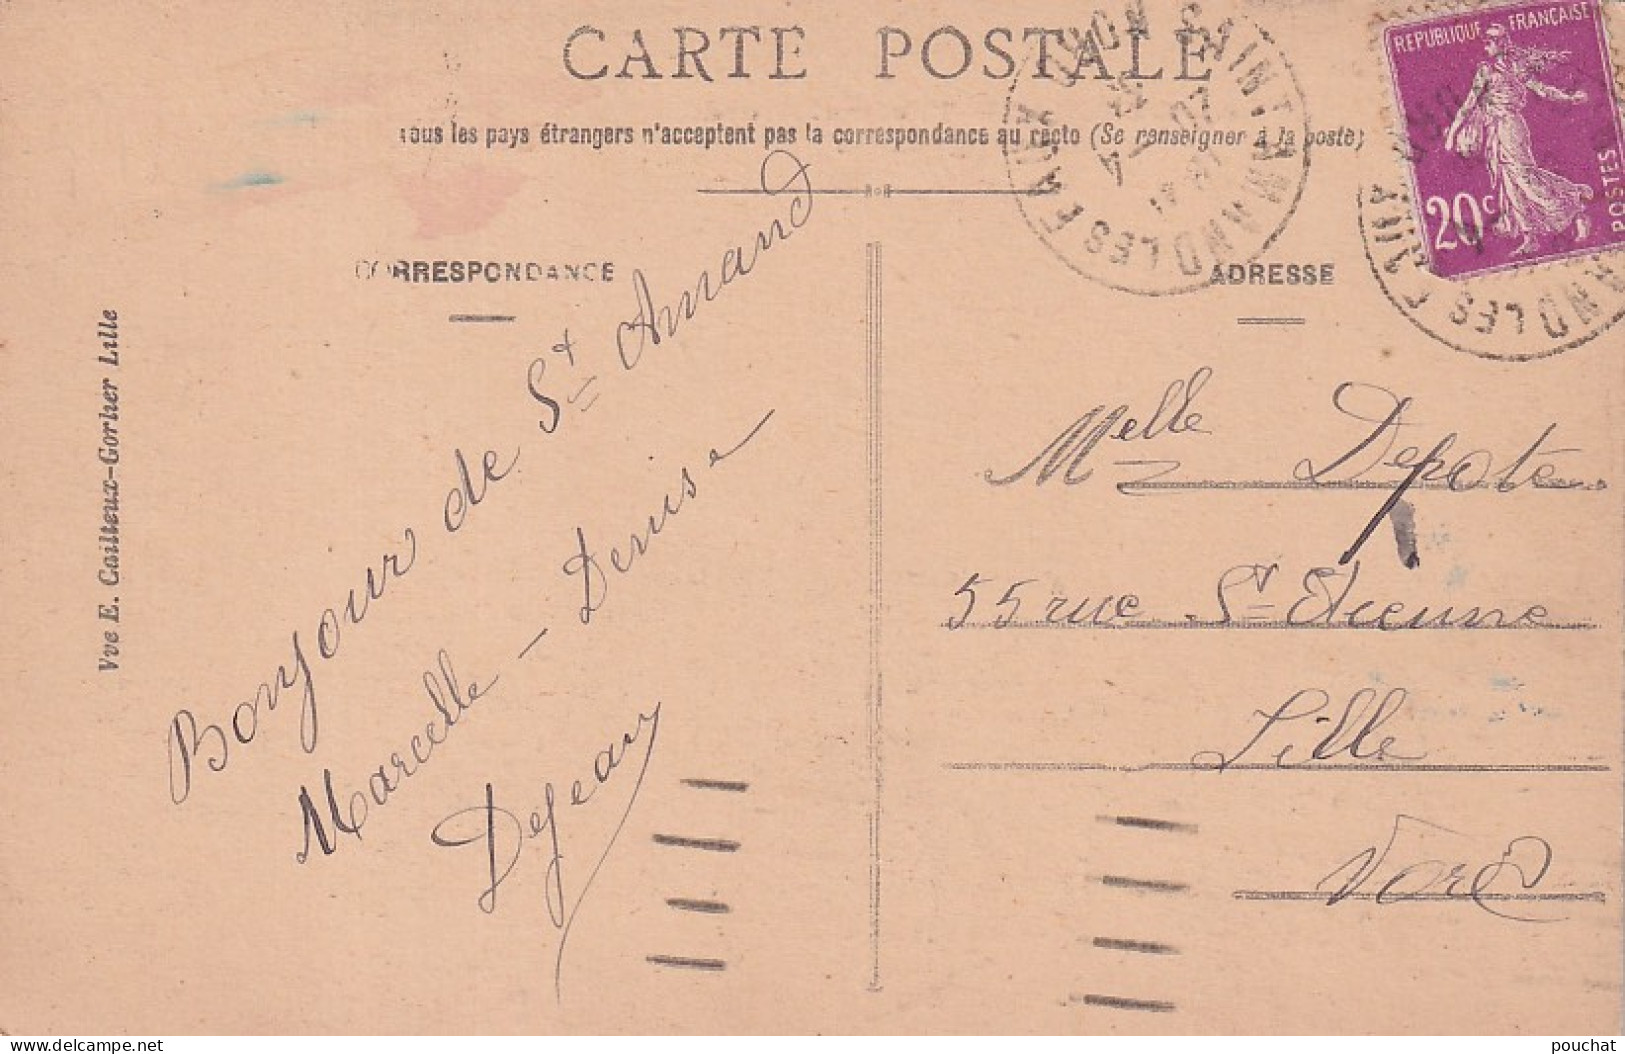 CARTE POSTALE
Tous les pays étrangers n'acceptent pas la correspondance au recto (Se renseigner à la poste)
CORRESPONDANCE
ADRESSE
REPUBLIQUE FRANÇAISE
20c
POSTES
SAINT AMAND LES EAUX
Vve E. Cailteux-Gorlier Lille
Bonjour de St Amand
Marcelle - Denise
Dejean
Melle Depote
55 rue St Etienne
Lille
Nord
pouchat